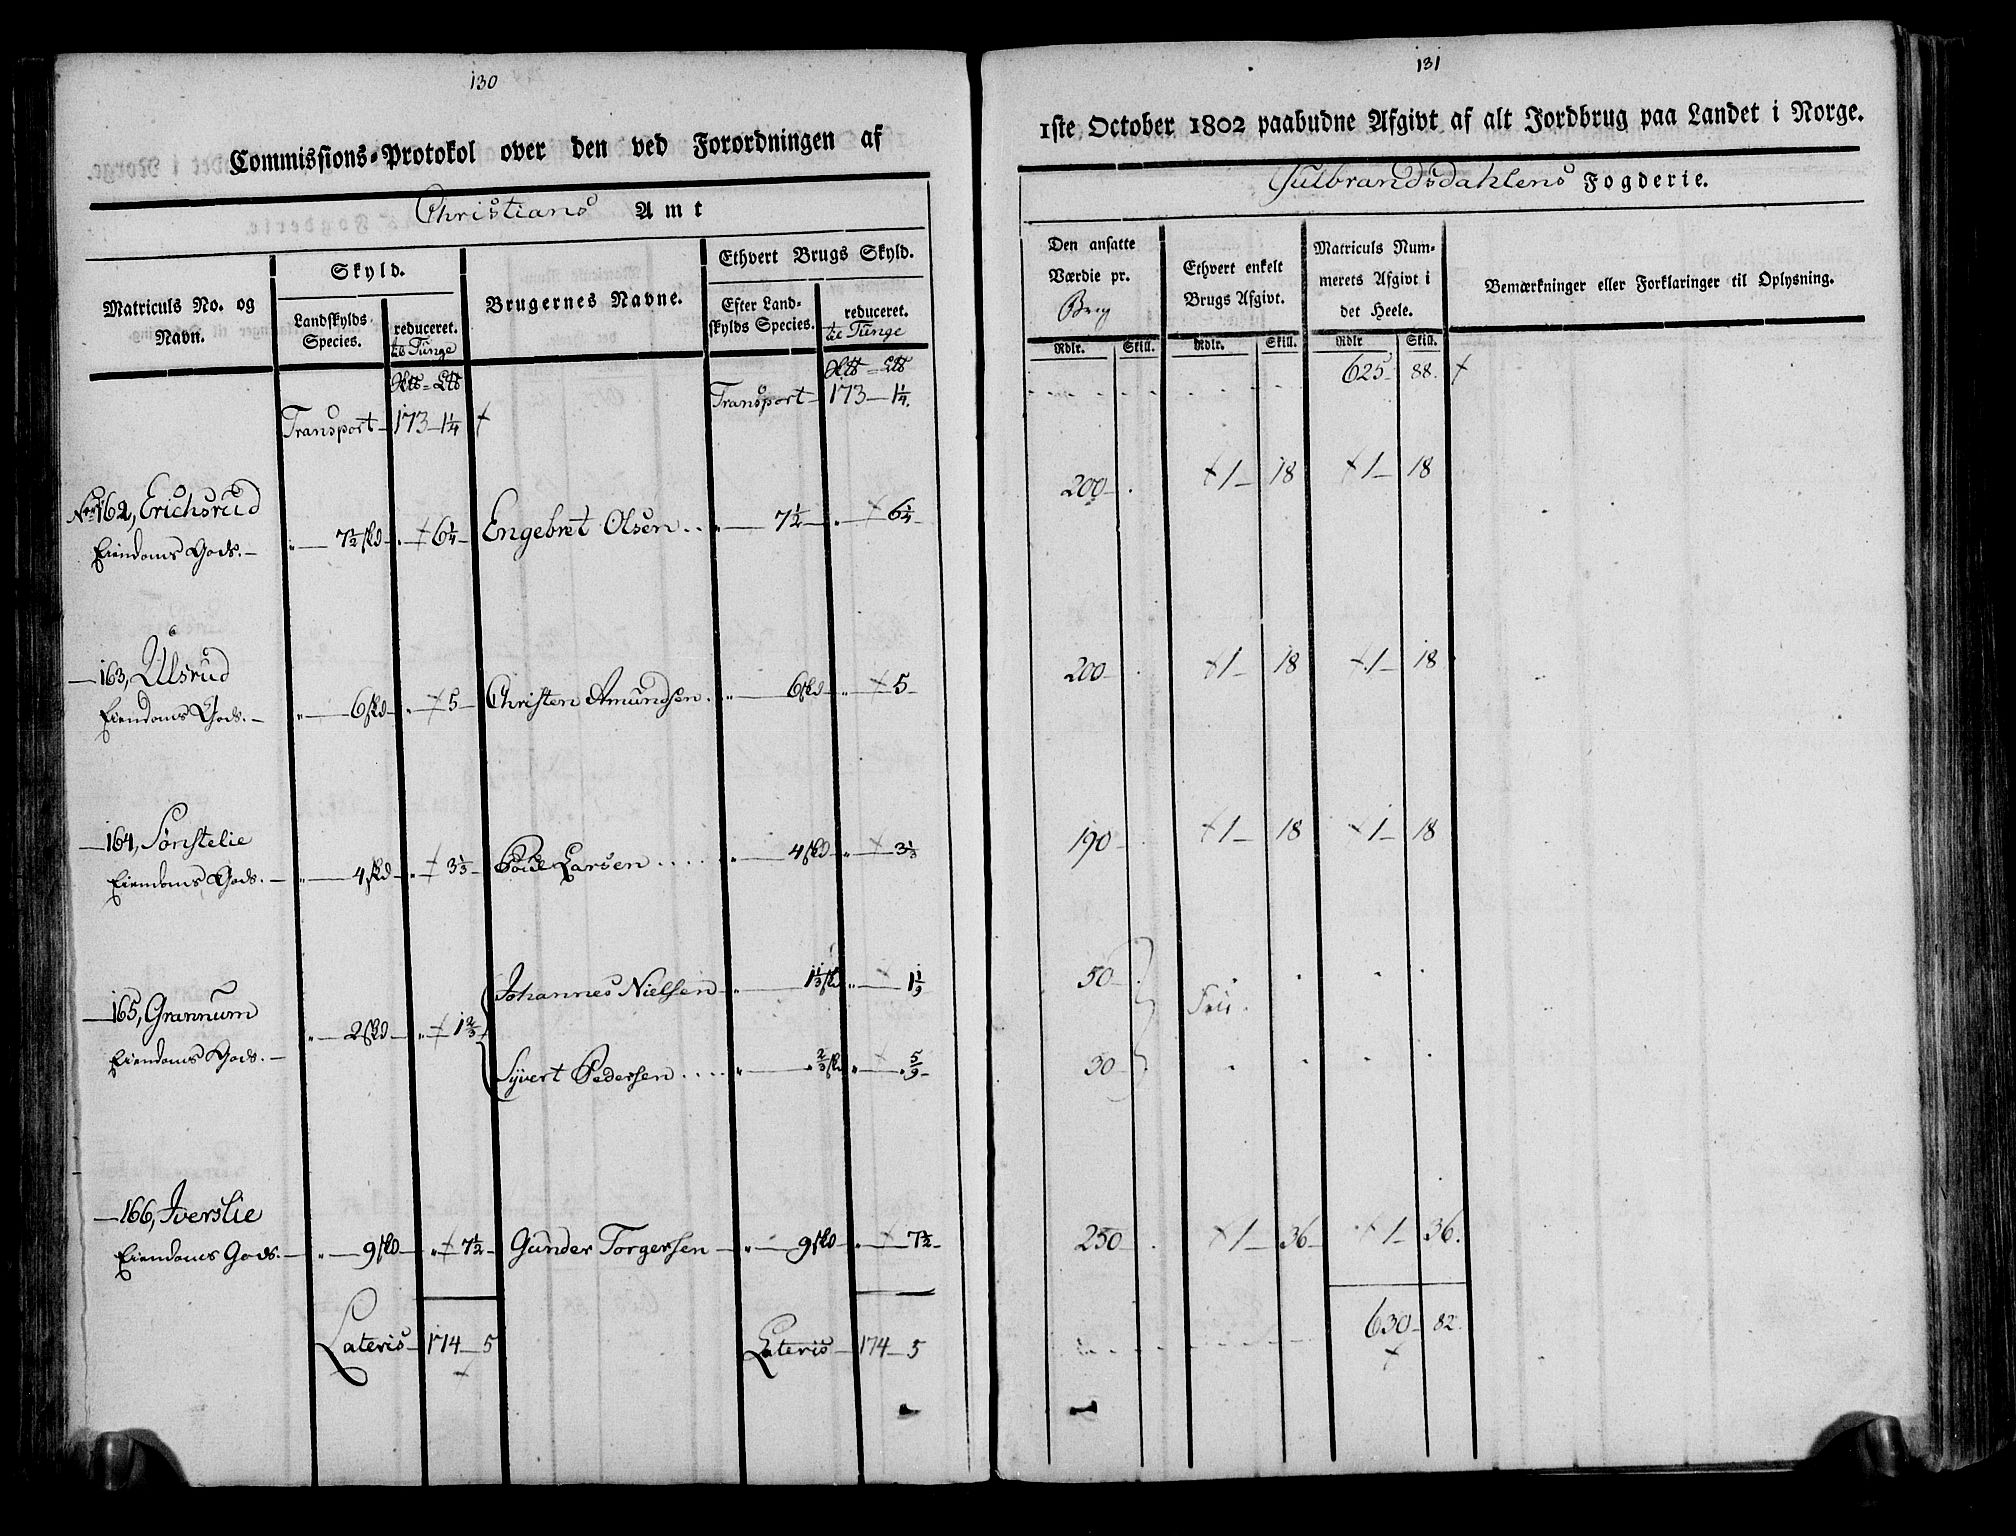 130
Commissions-Protokol over den ved Forordningen af
Christians Amt
Matriculs No. og Navn.
Skyld.
Landskylds Species.
reduceret. til Tunge
Brugernes Navne.
Ethvert Brugs Skyld.
Efter Landskylds Species.
reduceret. til Tunge
Transport 173 1¼ Transport 173 1¼
No 162, Erichsrud
Eiendoms Gods. " 7½ skd " 6¼ Engebret Olsen " 7½ " 6¼
163, Ulsrud
Eiendoms Gods. " 6 skd " 5 Christen Amundsen " 6 skd " 5
164, Sønstelie
Eiendoms Gods. " 4 skd " 3⅓ Poul Larsen " 4 skd " 3⅓
165, Grannum
Eiendoms Gods. " 2 skd " 1⅔
Johannes Nielsen " 1⅓ skd " 1 1/9
Syvert Pedersen " ⅔ skd " 5/9
166, Iverslie
Eiendoms Gods. " 9 skd " 7½ Gunder Torgersen " 9 skd " 7½
Lateris 174 5 Lateris 174 5
131
1ste October 1802 paabudne Afgivt af alt Jordbrug paa Landet i Norge.
Gulbrandsdahlens Fogderie.
Den ansatte Værdie pr. Brug
Ethvert enkelt Brugs Afgivt.
Matriculs Nummerets Afgivt i det Heele.
Bemærkninger eller Forklaringer til Oplysning.
Rdlr. Skill. Rdlr. Skill. Rdlr Skill.
625 88
200 1 18 1 18
200 1 18 1 18
190 1 18 1 18
50
Frie
30
250 1 36 1 36
630 82